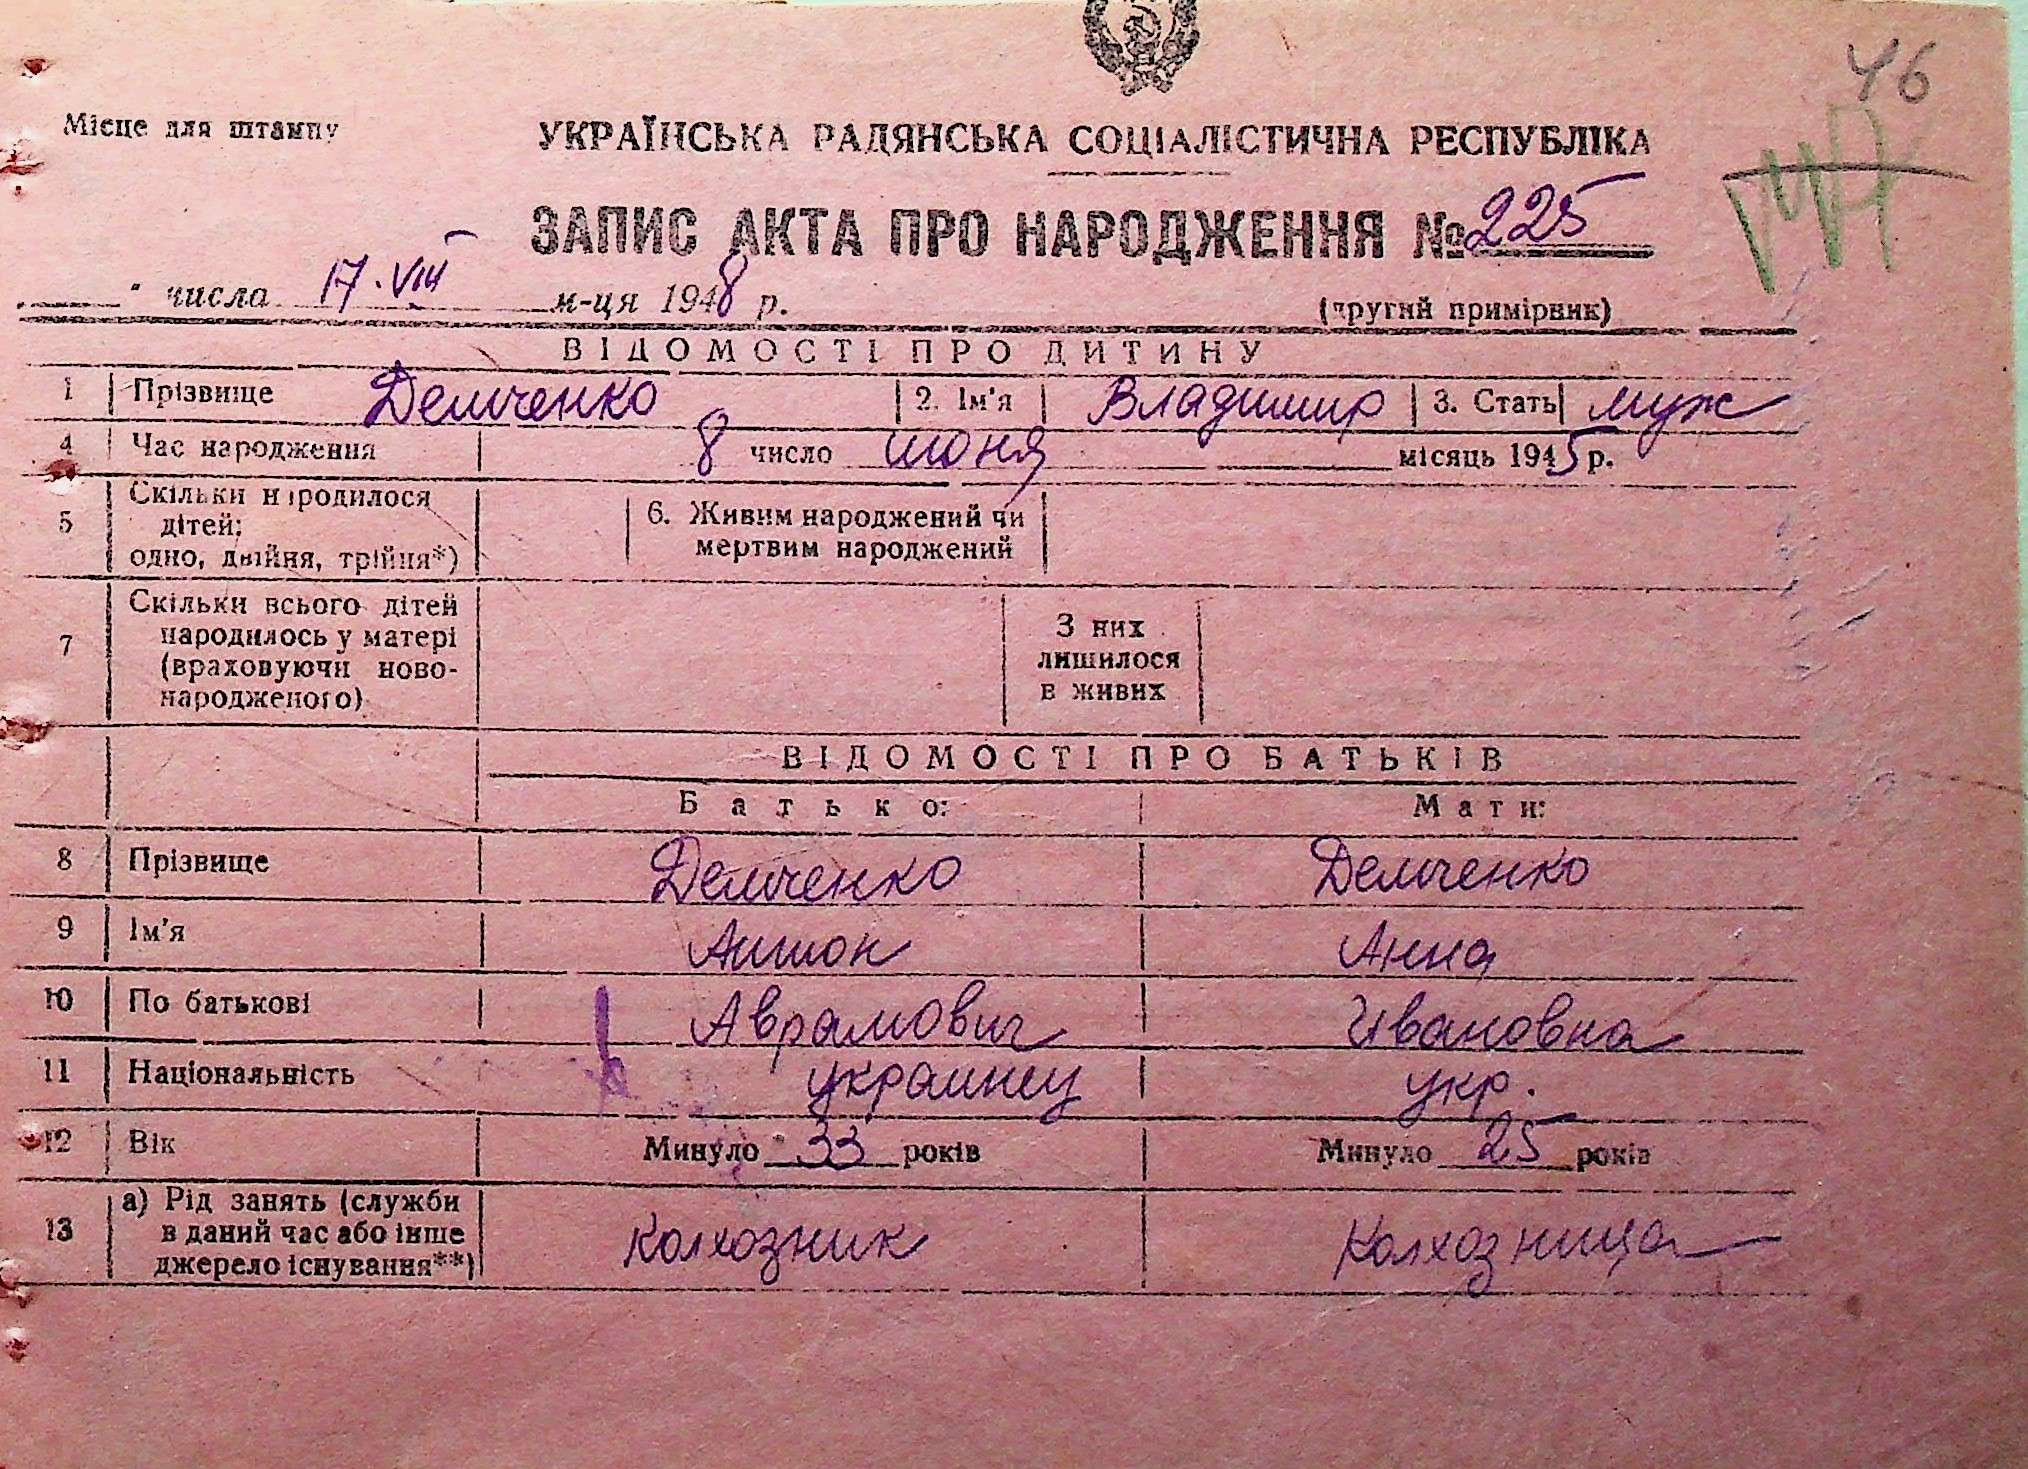 46
Місце для штампу
УКРАЇНСЬКА РАДЯНСЬКА СОЦІАЛІСТИЧНА РЕСПУБЛІКА
ЗАПИС АКТА ПРО НАРОДЖЕННЯ № 225
" числа 17.VIII м-ця 1948 р.
(другий примірник)
ВІДОМОСТІ ПРО ДИТИНУ
1 Прізвище Демченко 2. Ім'я Владимир 3. Стать муж
4 Час народження 8 число июня місяць 1945 р.
5 Скільки народилося дітей: одно, двійня, трійня*)
6. Живим народжений чи мертвим народжений
7 Скільки всього дітей народилось у матері (враховуючи новонародженого)
З них лишилося в живих
ВІДОМОСТІ ПРО БАТЬКІВ
Батько: Мати:
8 Прізвище Демченко Демченко
9 Ім'я Антон Анна
10 По батькові Аврамович Ивановна
11 Національність украинец укр.
12 Вік Минуло 33 років Минуло 25 років
13 а) Рід занять (служби в даний час або інше джерело існування**) Колхозник Колхозница